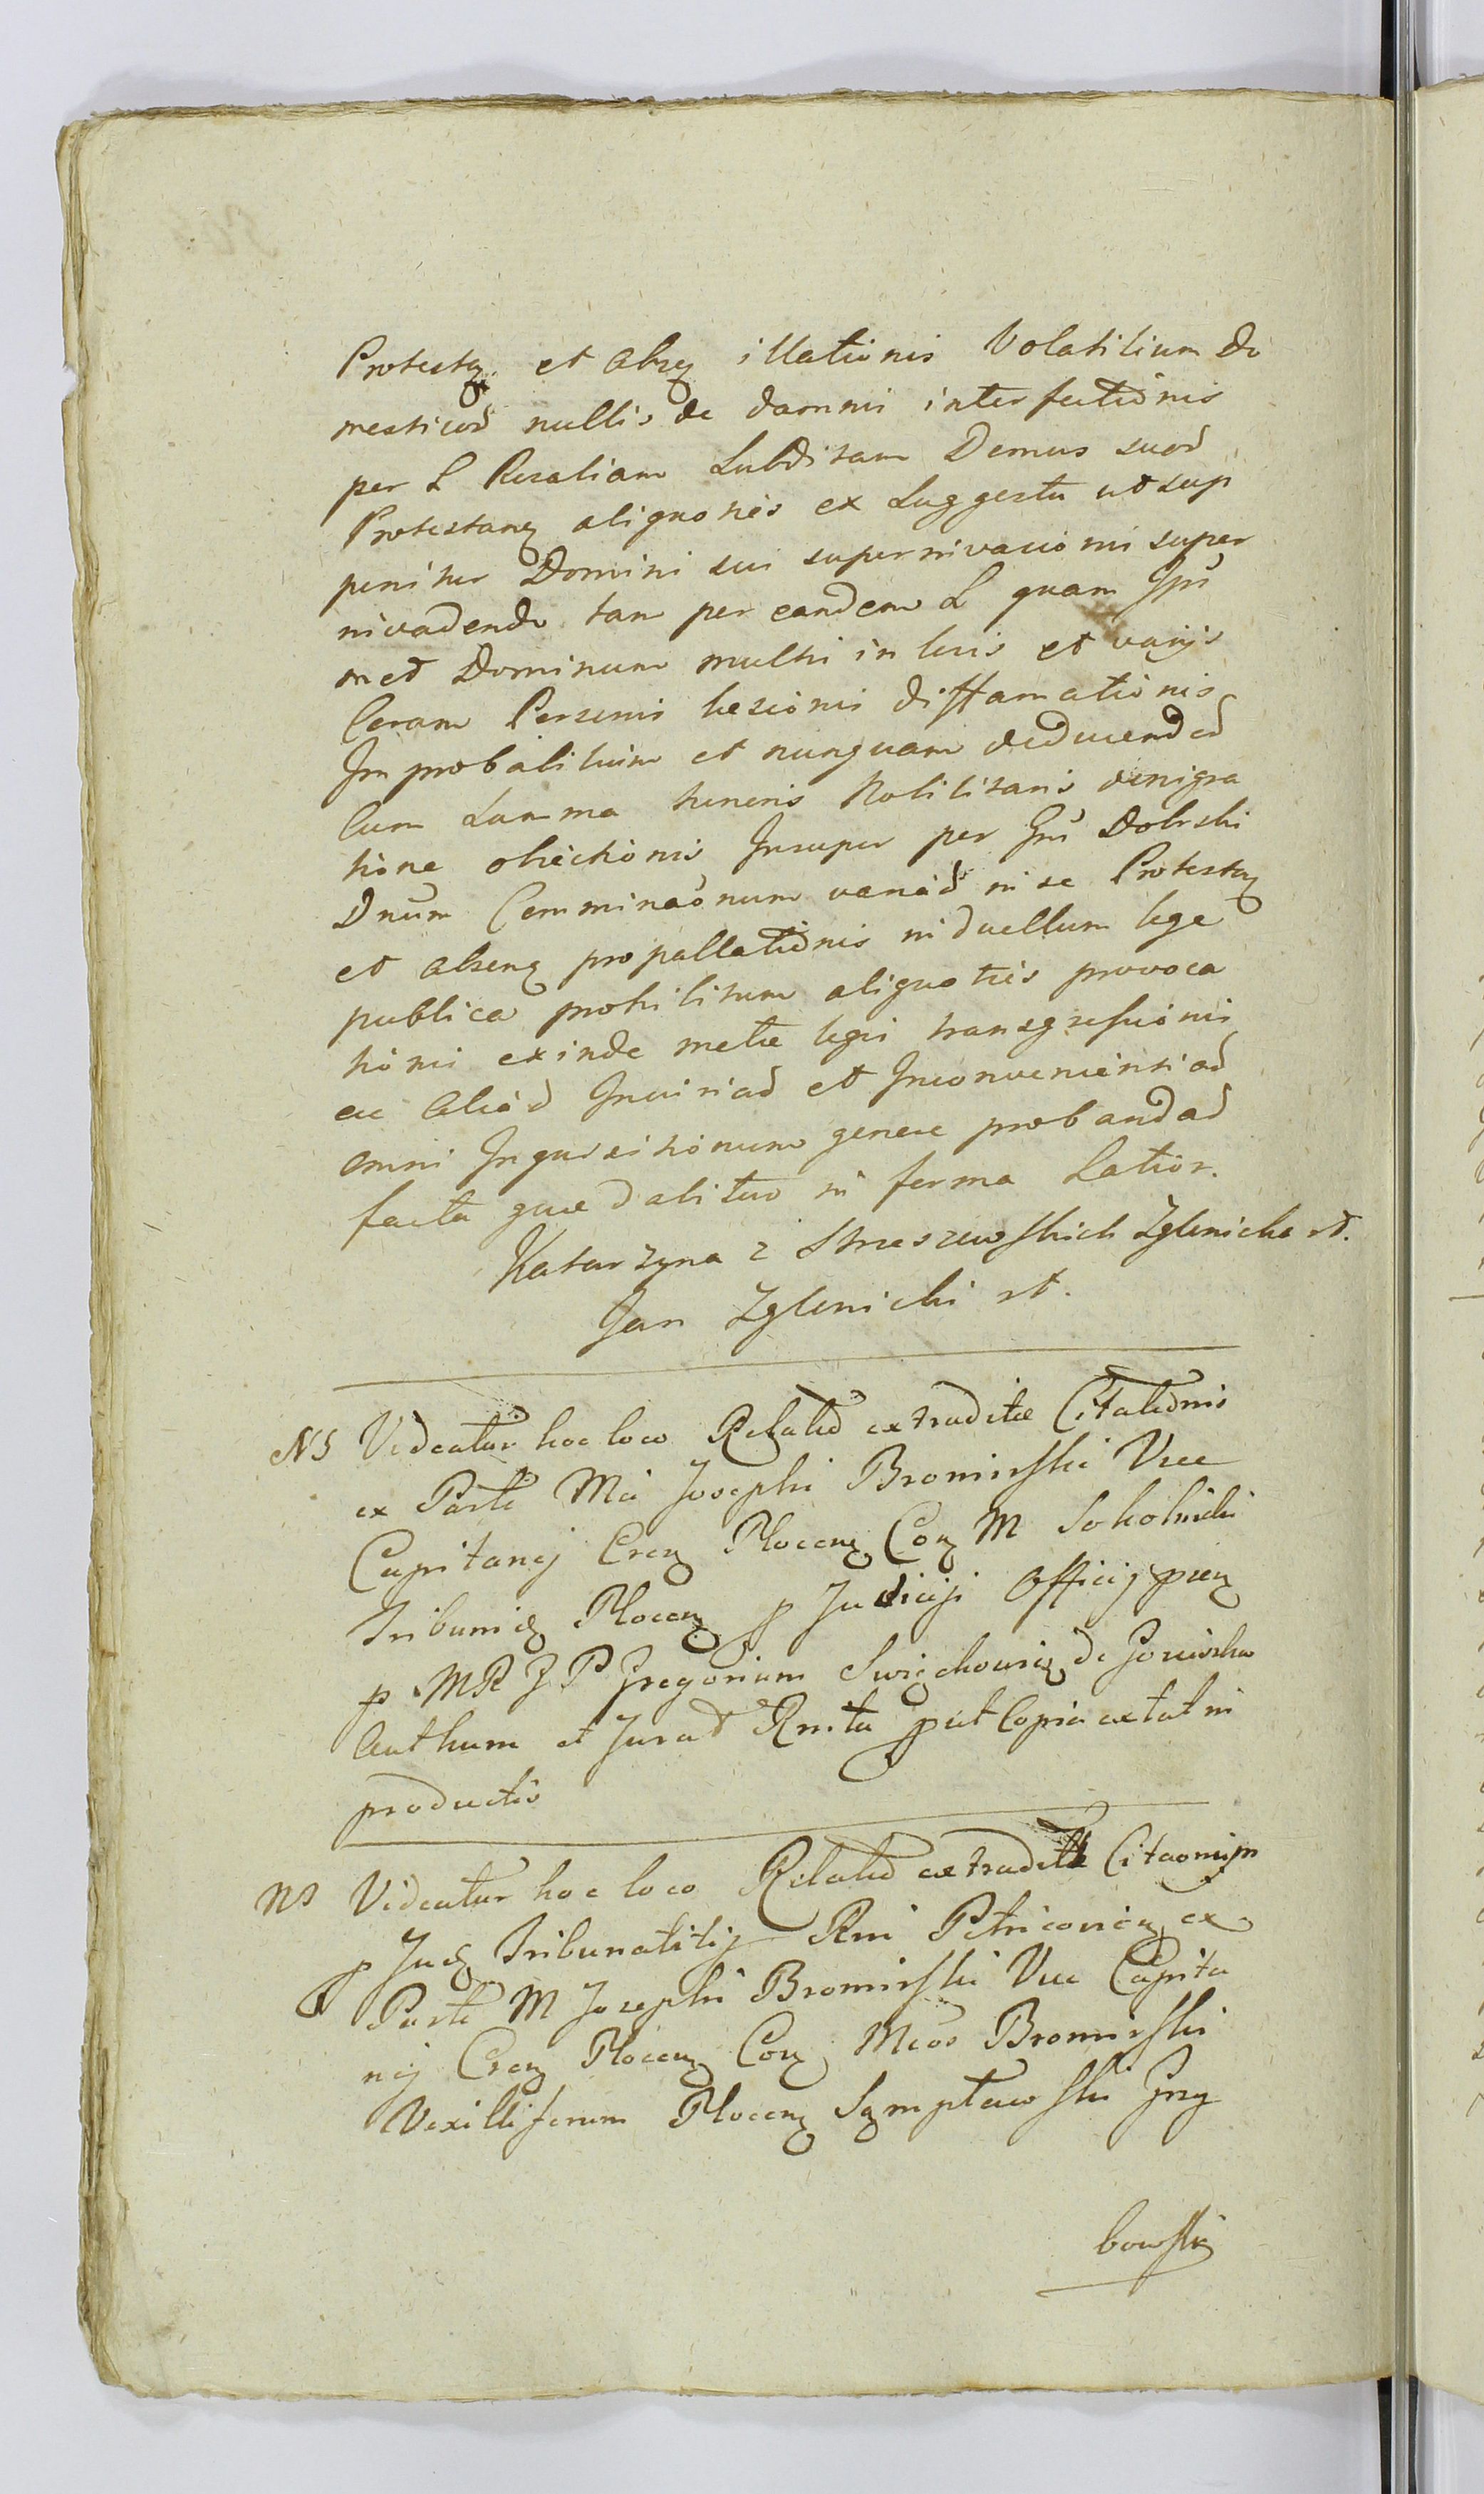 Protestq et absq illationis Volatilium do
mesticor nullis de damni interfectionis
per L Rosaliam Subditam Domus suor
Protestanq aliquoties ex Suggestu ut sup
penitur Domini sui super invasionis super
invadendo tam per eandem L quam Ipsu
met Dominum multis in locis et varijs
Coram Personis lesionis diffamationis
Improbabilium et nunquam deducended
Cum Summa honoris Nobilitaris denigra
tione obiectionis Insuper per Gnu Dobrski
Dnum Comminaonum variad in se Protestaq
et absenq propallationis in duellum lege
publica prohibitum aliquoties provoca
tionis exinde metæ legis transgressionis
ac aliad Iniuriad et Inconvenientiad
omni Inquisitionum genere probandad
facta quæ dabitur in forma Latior.
Katarzyna z Strzeszewskich Zglenicka rt.
Jan Zglenicki rt.
NB Videatur hoc loco Relatio extraditæ Citationis
ex Parte Mci Josephi Bromirski Vice
Capitanej Crenq Plocenq Conq M Sokolnicki
Tribunidq Plocenq p Judicij Officij prenq
p MR J P Gregorium de
Authum et Jurat Rnita put Copia extat in
productis
NB Videatur hoc loco Relatio extraditæ Citaonis in
p Judq Tribunalitij Rni Petricovienq ex
Parte M Josephi Bromirski Vice Capita
nej Crenq Plocenq Conq Mcos Bromirski
Vexilliferum Plocenq Sqmptawski Grzy
bowski